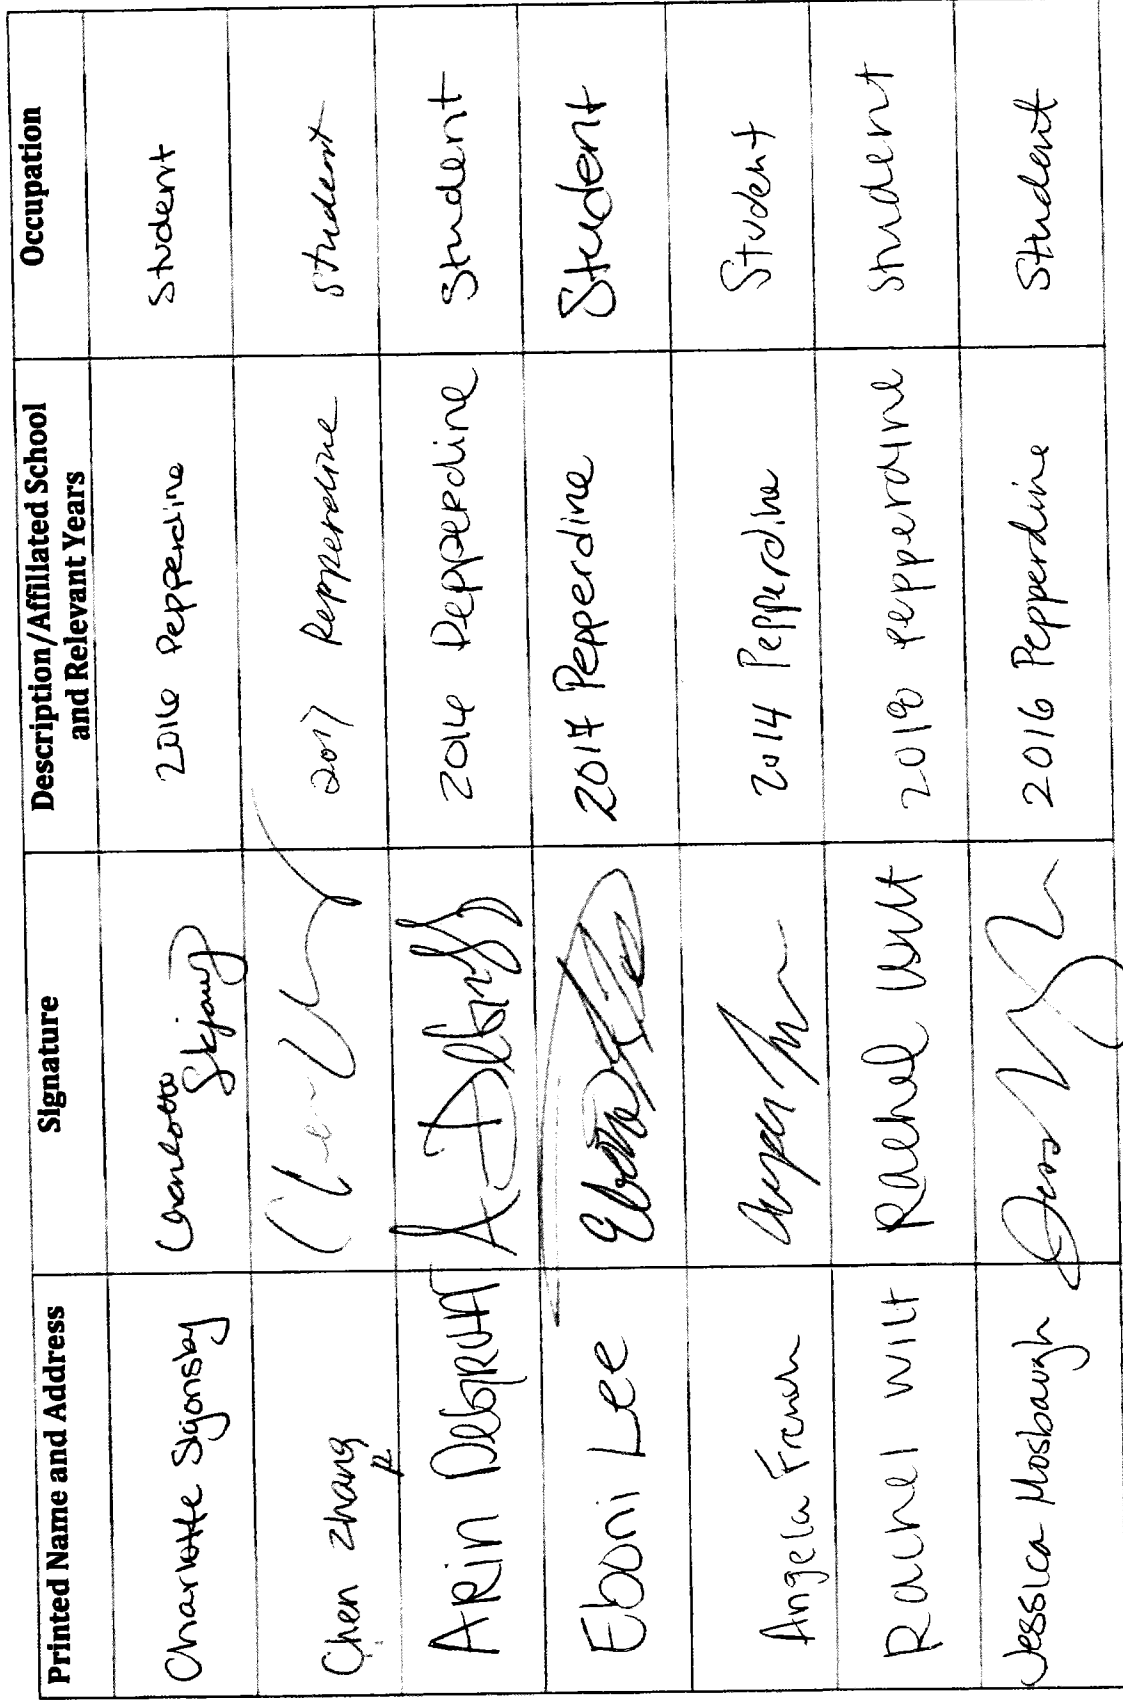 Printed Name and Address Signature Description/Affiliated School Occupation
and Relevant Years
Charlotte Signonsby Charlotte 2016 Pepperdine Student
Chen Zhang 2017 Pepperdine student
ARin DeGRUTT 2014 Pepperdine Student
Eboni Lee Eboni Lee 2017 Pepperdine Student
Angela French 2014 Pepperdine Student
Rachel Wilt Rachel Wilt 2018 Pepperdine student
Jessica Mosbaugh 2016 Pepperdine Student